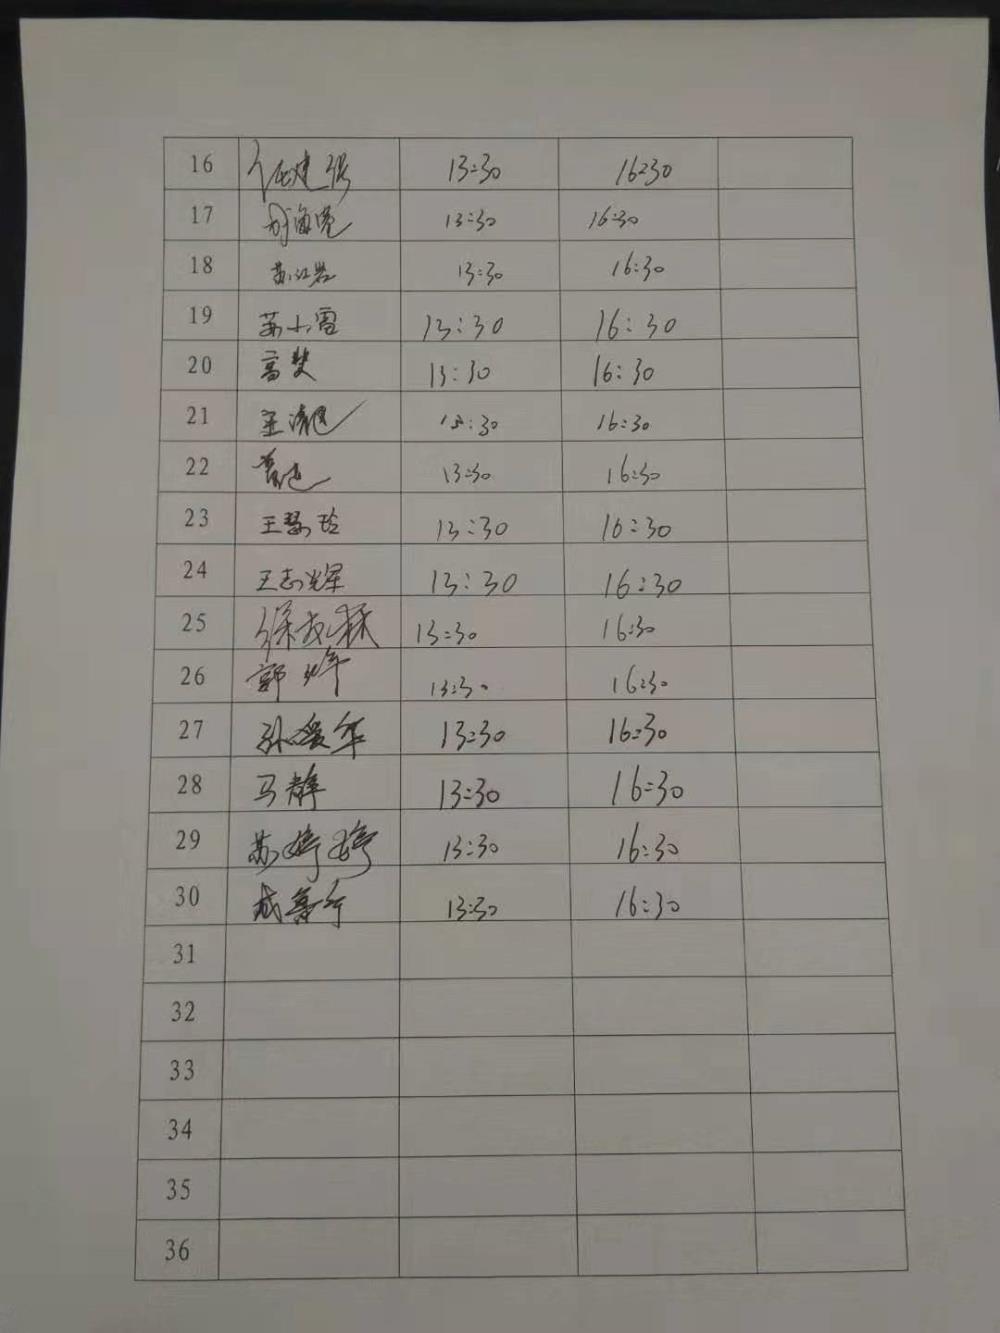 16 13:30 16:30
17 13:30 16:30
18 苏江岩 13:30 16:30
19 苏小雷 13:30 16:30
20 高斐 13:30 16:30
21 13:30 16:30
22 13:30 16:30
23 王瑟玲 13:30 16:30
24 王志辉 13:30 16:30
25 13:30 16:30
26 郭烨 13:30 16:30
27 13:30 16:30
28 马静 13:30 16:30
29 苏婷婷 13:30 16:30
30 13:30 16:30
31
32
33
34
35
36